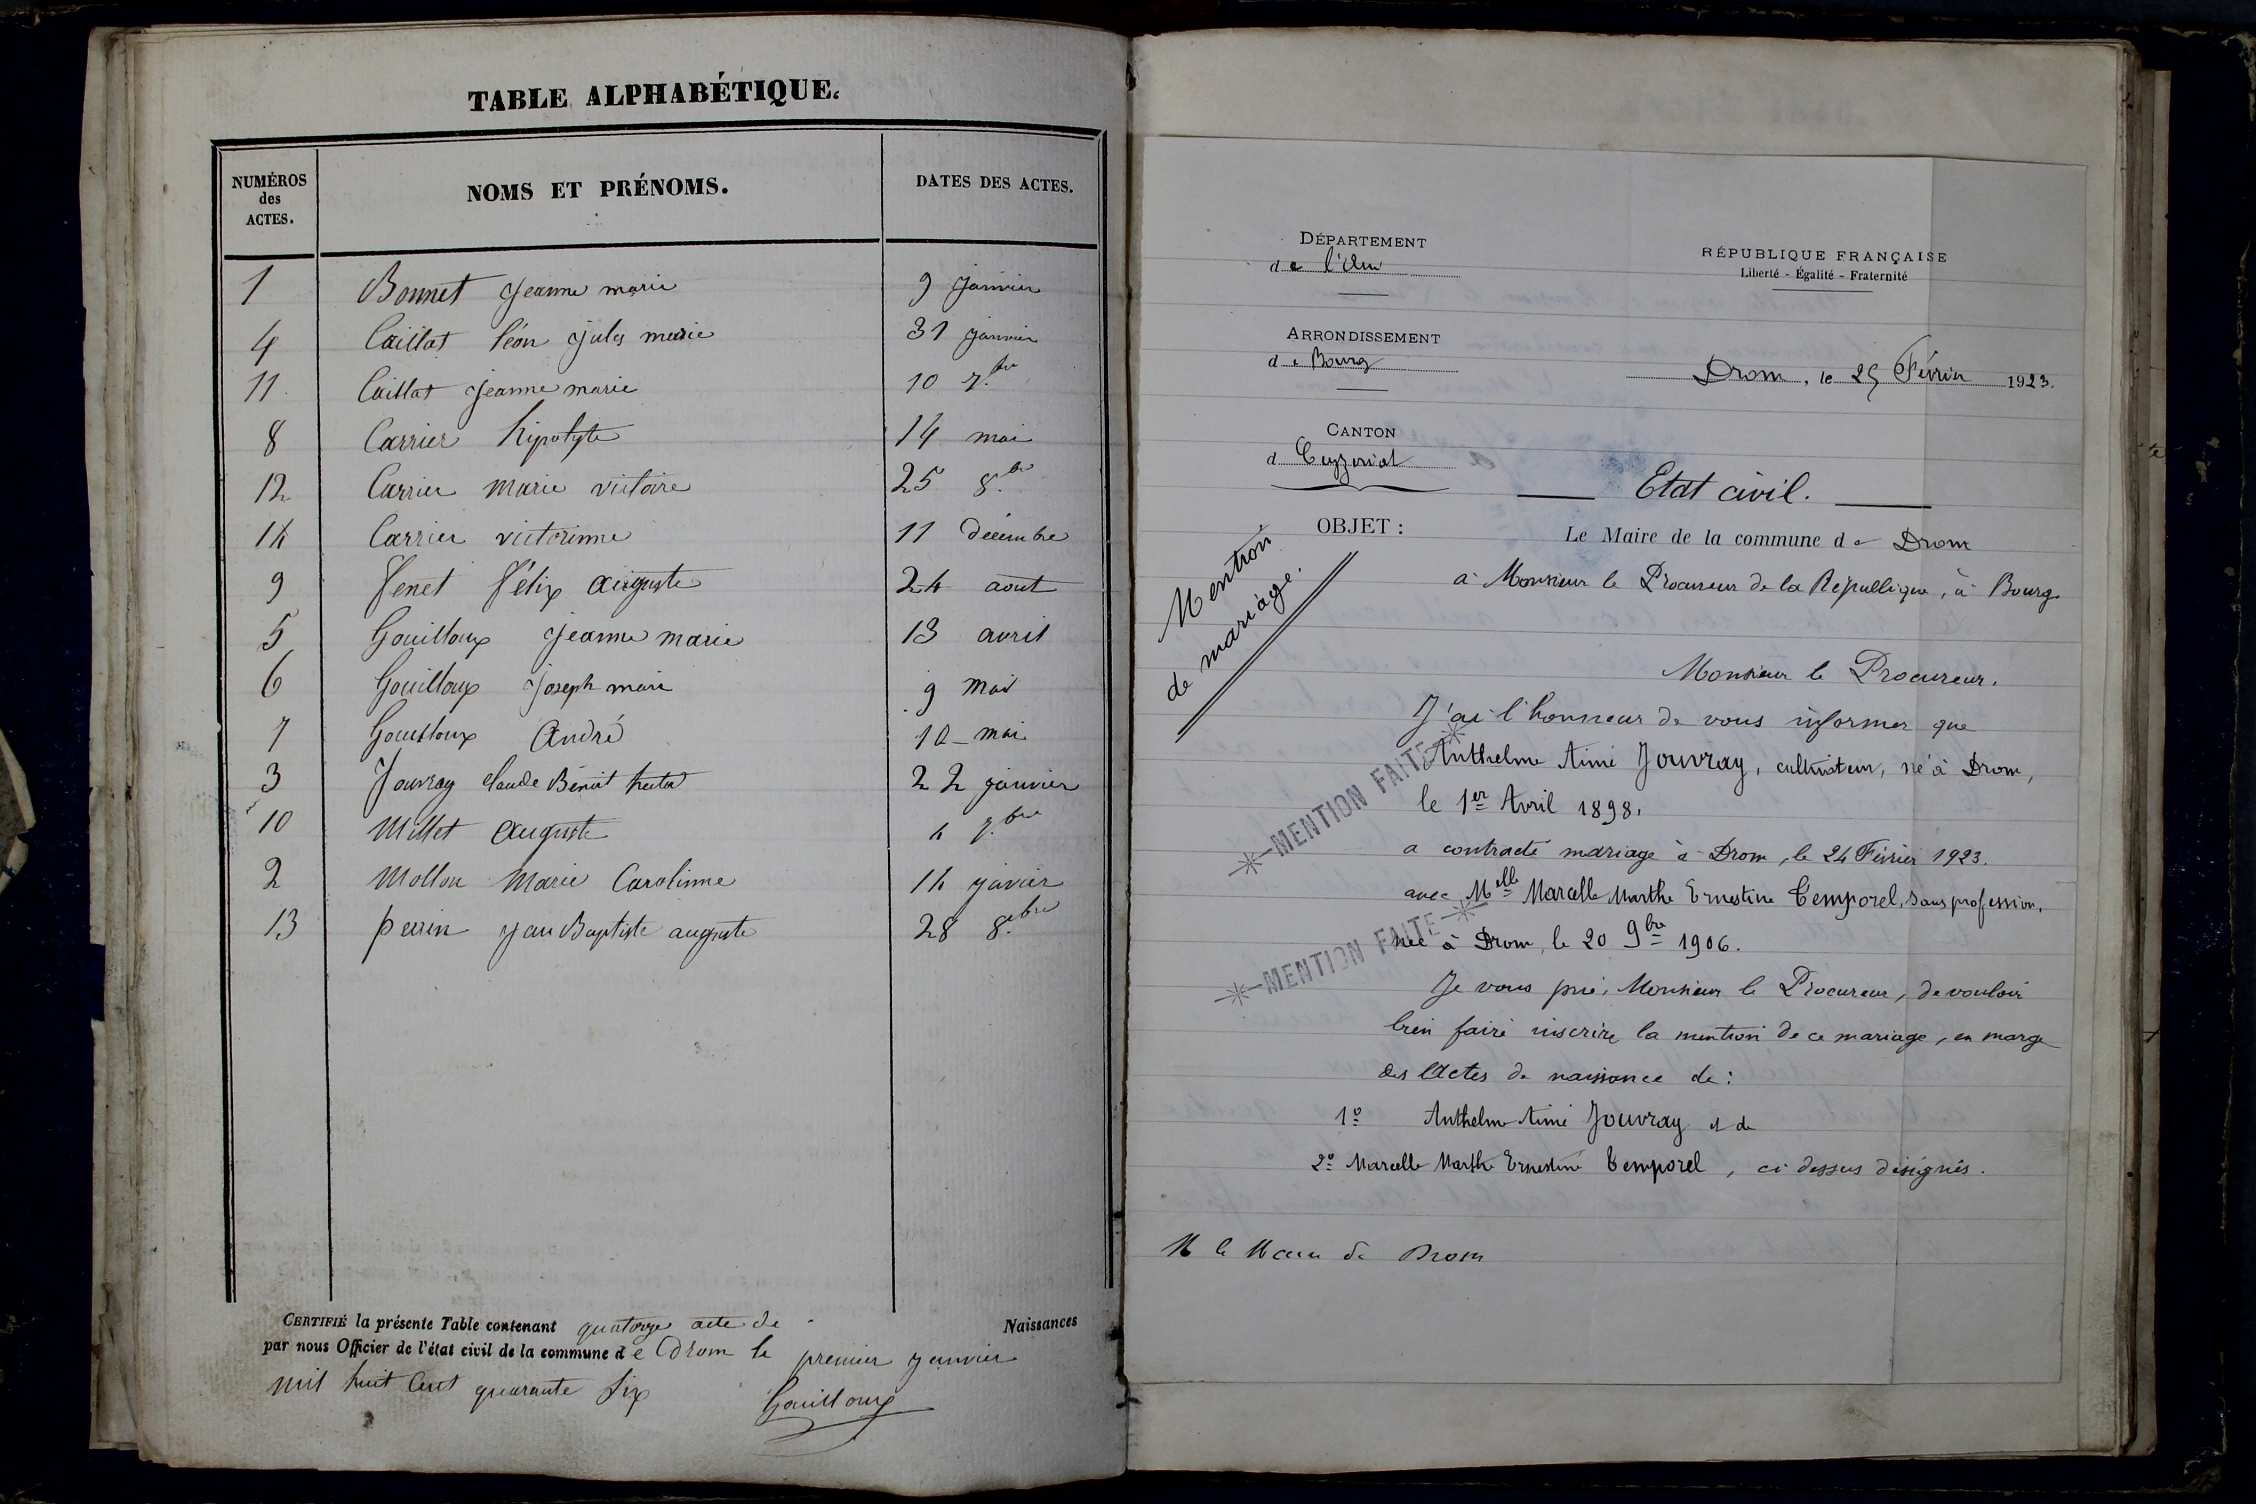 TABLE ALPHABÉTIQUE.
NUMÉROS des ACTES. NOMS ET PRÉNOMS. DATES DES ACTES.
1 Bonnet Jeanne marie 9 janvier
4 Caillat léon jules marie 31 janvier
11 Caillat jeanne marie 10 7.bre
8 Carrier hipolyte 14 mai
12 Carrier marie victoire 25 8.bre
14 Carrier victorinne 11 décembre
9 Fenet Félix auguste 24 aout
5 Gouilloux jeanne marie 13 avril
6 Gouilloux joseph marie 9 mai
7 Gouilloux André 10 mai
3 Jouvray claude Bénoit 22 janvier
10 Millet auguste 4 7.bre
2 Mollon Marie Carolinne 14 javier
13 perrin jean Baptiste auguste 28 8.bre
CERTIFIÉ la présente Table contenant quatorze acte de Naissances
par nous Officier de l'état civil de la commune de Drom le premier janvier
mil huit Cent quarante six Gouilloux
DÉPARTEMENT
de l'Ain
RÉPUBLIQUE FRANÇAISE
Liberté - Égalité - Fraternité
ARRONDISSEMENT
de Bourg
Drom, le 25 Février 1923.
CANTON
d Ceyzériat
Etat civil.
OBJET :
Mention
de mariage.
Le Maire de la commune de Drom
à Monsieur le Procureur de la République, à Bourg.
Monsieur le Procureur.
J'ai l'honneur de vous informer que
Anthelme Aimé Jouvray, cultivateur, né à Drom,
le 1er Avril 1898,
MENTION FAITE
a contracté mariage à Drom, le 24 Février 1923.
avec Melle Marcelle Marthe Ernestine Temporel, sans profession,
née à Drom, le 20 9bre 1906.
MENTION FAITE
Je vous prie, Monsieur le Procureur, de vouloir
bien faire inscrire la mention de ce mariage, en marge
des Actes de naissance de :
1º Anthelme Aimé Jouvray et de
2º Marcelle Marthe Ernestine Temporel, ci dessus désignés.
M le Maire de Drom